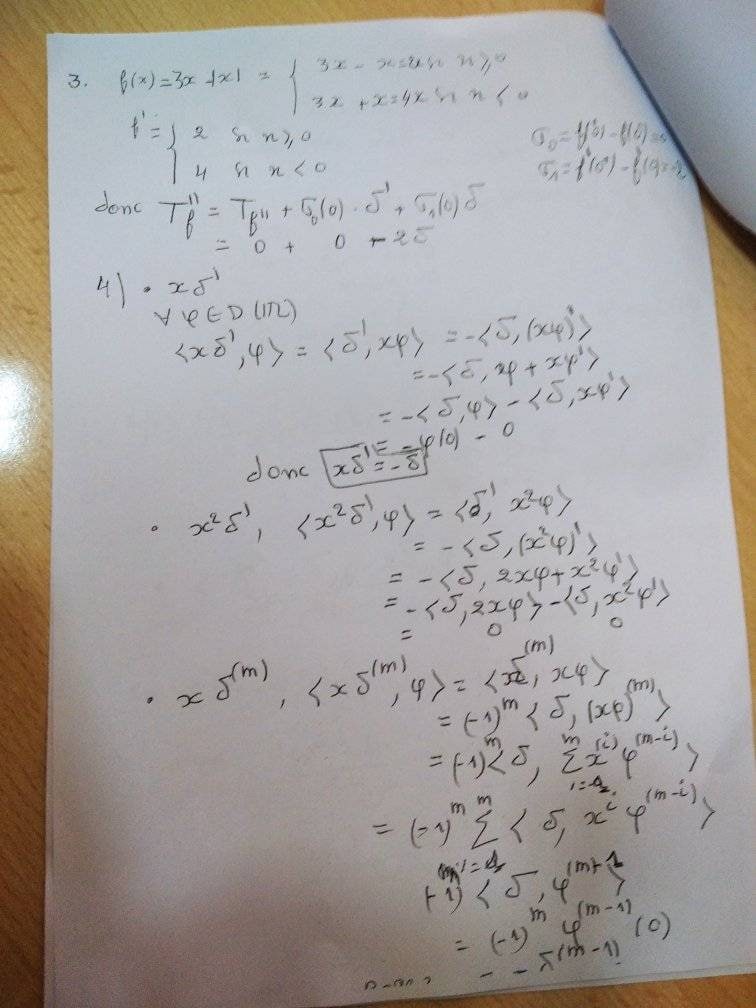 3. f(x)=3x-|x| = { 3x - x=2x si x≥0
3x + x=4x si x < 0
f' = { 2 si x≥0
4 si x < 0
σ₀ = f(0⁺) - f(0⁻)=0
σ₁ = f'(0⁺) - f'(0⁻)=-2
donc T_f'' = T_f'' + σ₀(0) · δ' + σ₁(0) δ
= 0 + 0 - 2δ
4) • xδ'
∀ φ ∈ D(ℝ)
⟨xδ', φ⟩ = ⟨δ', xφ⟩ = -⟨δ, (xφ)'⟩
= -⟨δ, φ + xφ'⟩
= -⟨δ, φ⟩ - ⟨δ, xφ'⟩
= -φ(0) - 0
donc xδ' = -δ
• x²δ', ⟨x²δ', φ⟩ = ⟨δ', x²φ⟩
= -⟨δ, (x²φ)'⟩
= -⟨δ, 2xφ + x²φ'⟩
= -⟨δ, 2xφ⟩ - ⟨δ, x²φ'⟩
= 0 0
• xδ^(m), ⟨xδ^(m), φ⟩ = ⟨δ^(m), xφ⟩
= (-1)^m ⟨δ, (xφ)^(m)⟩
= (-1)^m ⟨δ, Σ^m x^(i) φ^(m-i)⟩
= (-1)^m Σ^m ⟨δ, x^i φ^(m-i)⟩
(-1) ⟨δ, φ^(m+1⟩
= (-1)^m φ^(m-1) (0)
- - δ^(m-1)